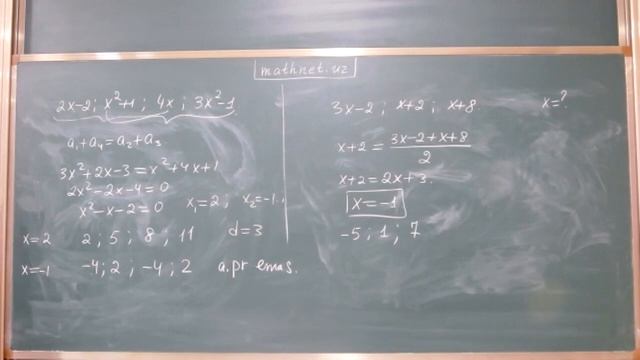 mathnet.uz
2x-2; x²+1; 4x; 3x²-1
a₁+a₄=a₂+a₃
3x²+2x-3=x²+4x+1
2x²-2x-4=0
x²-x-2=0 x₁=2; x₂=-1.
x=2 2; 5; 8; 11 d=3
x=-1 -4; 2; -4; 2 a.pr emas.
3x-2; x+2; x+8. x=?
x+2=(3x-2+x+8)/2
x+2=2x+3.
x=-1
-5; 1; 7